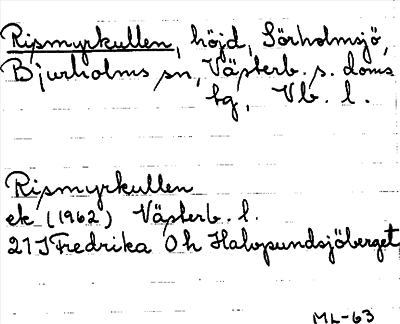 Rismyrkullen, höjd, Sörholmsjö,
Bjurholms sn, Västerb. s. doms
hg, Vb. l.
Rismyrkullen
ek (1962) Västerb. l.
21J Fredrika 0 h Halvsundsjöberget
ML-63